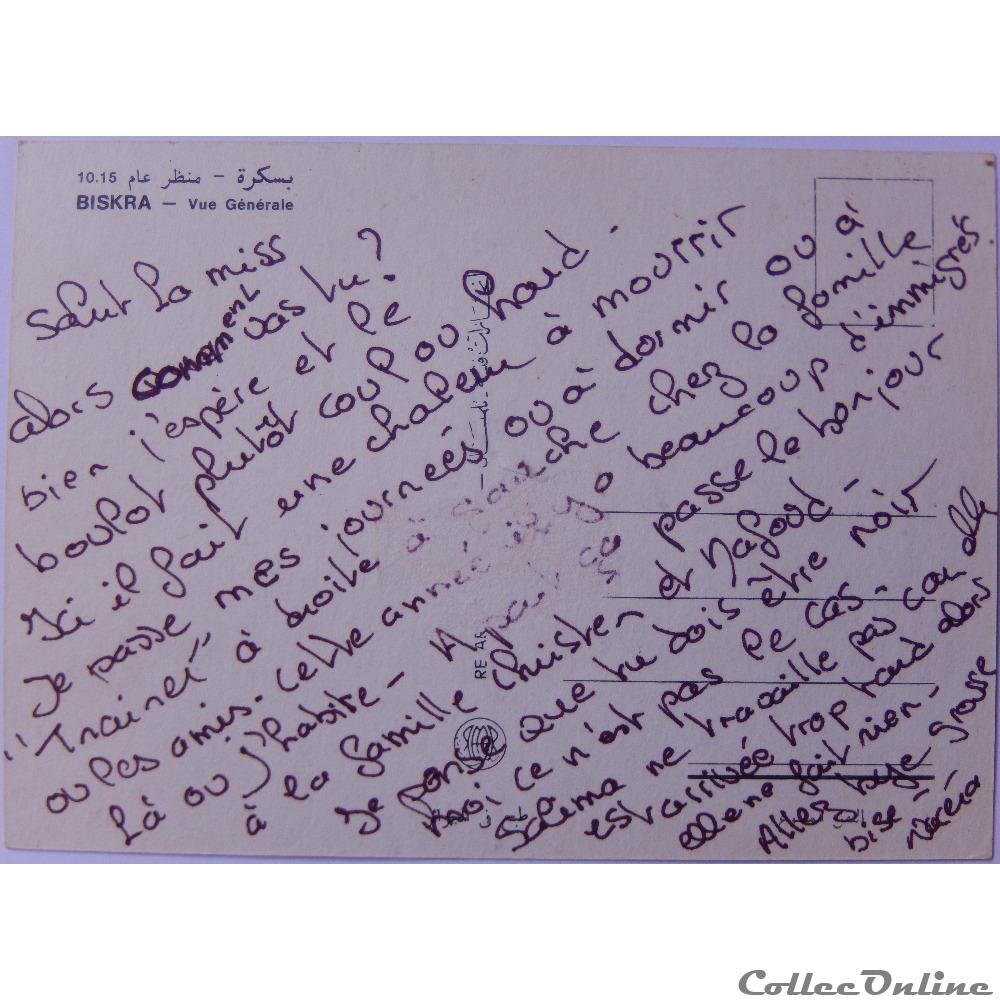 10.15 بسكرة – منظر عام
BISKRA — Vue Générale
Salut la miss
alors comment vas tu?
bien j'espère et le
boulot plutôt coul ou haud.
Ici il fait une chaleur à mourrir
Je passe mes journées ou à dormir ou à
"Trainer" à droite à gauche chez la famille
ou les amis. Cette année il y a beaucoup d'immigrés
là ou j'habite - A part ça passe le bonjour
à la famille Christen et
Je pense que tu dois être noir
moi ce n'est pas le cas.
Salima ne travaille pas car elle
est arrivée trop tard alors
elle ne fait rien.
Allez bye grosse
bise -
RE AR
CollecOnline